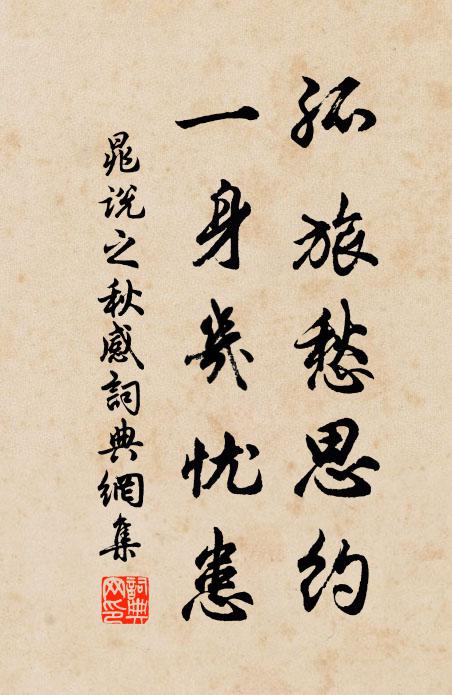 孤旅愁思约
一身几忧患
晁说之秋感词典網集
詞典
网印